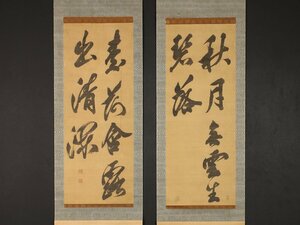 秋月無雲生
碧落
素荷含露
出清